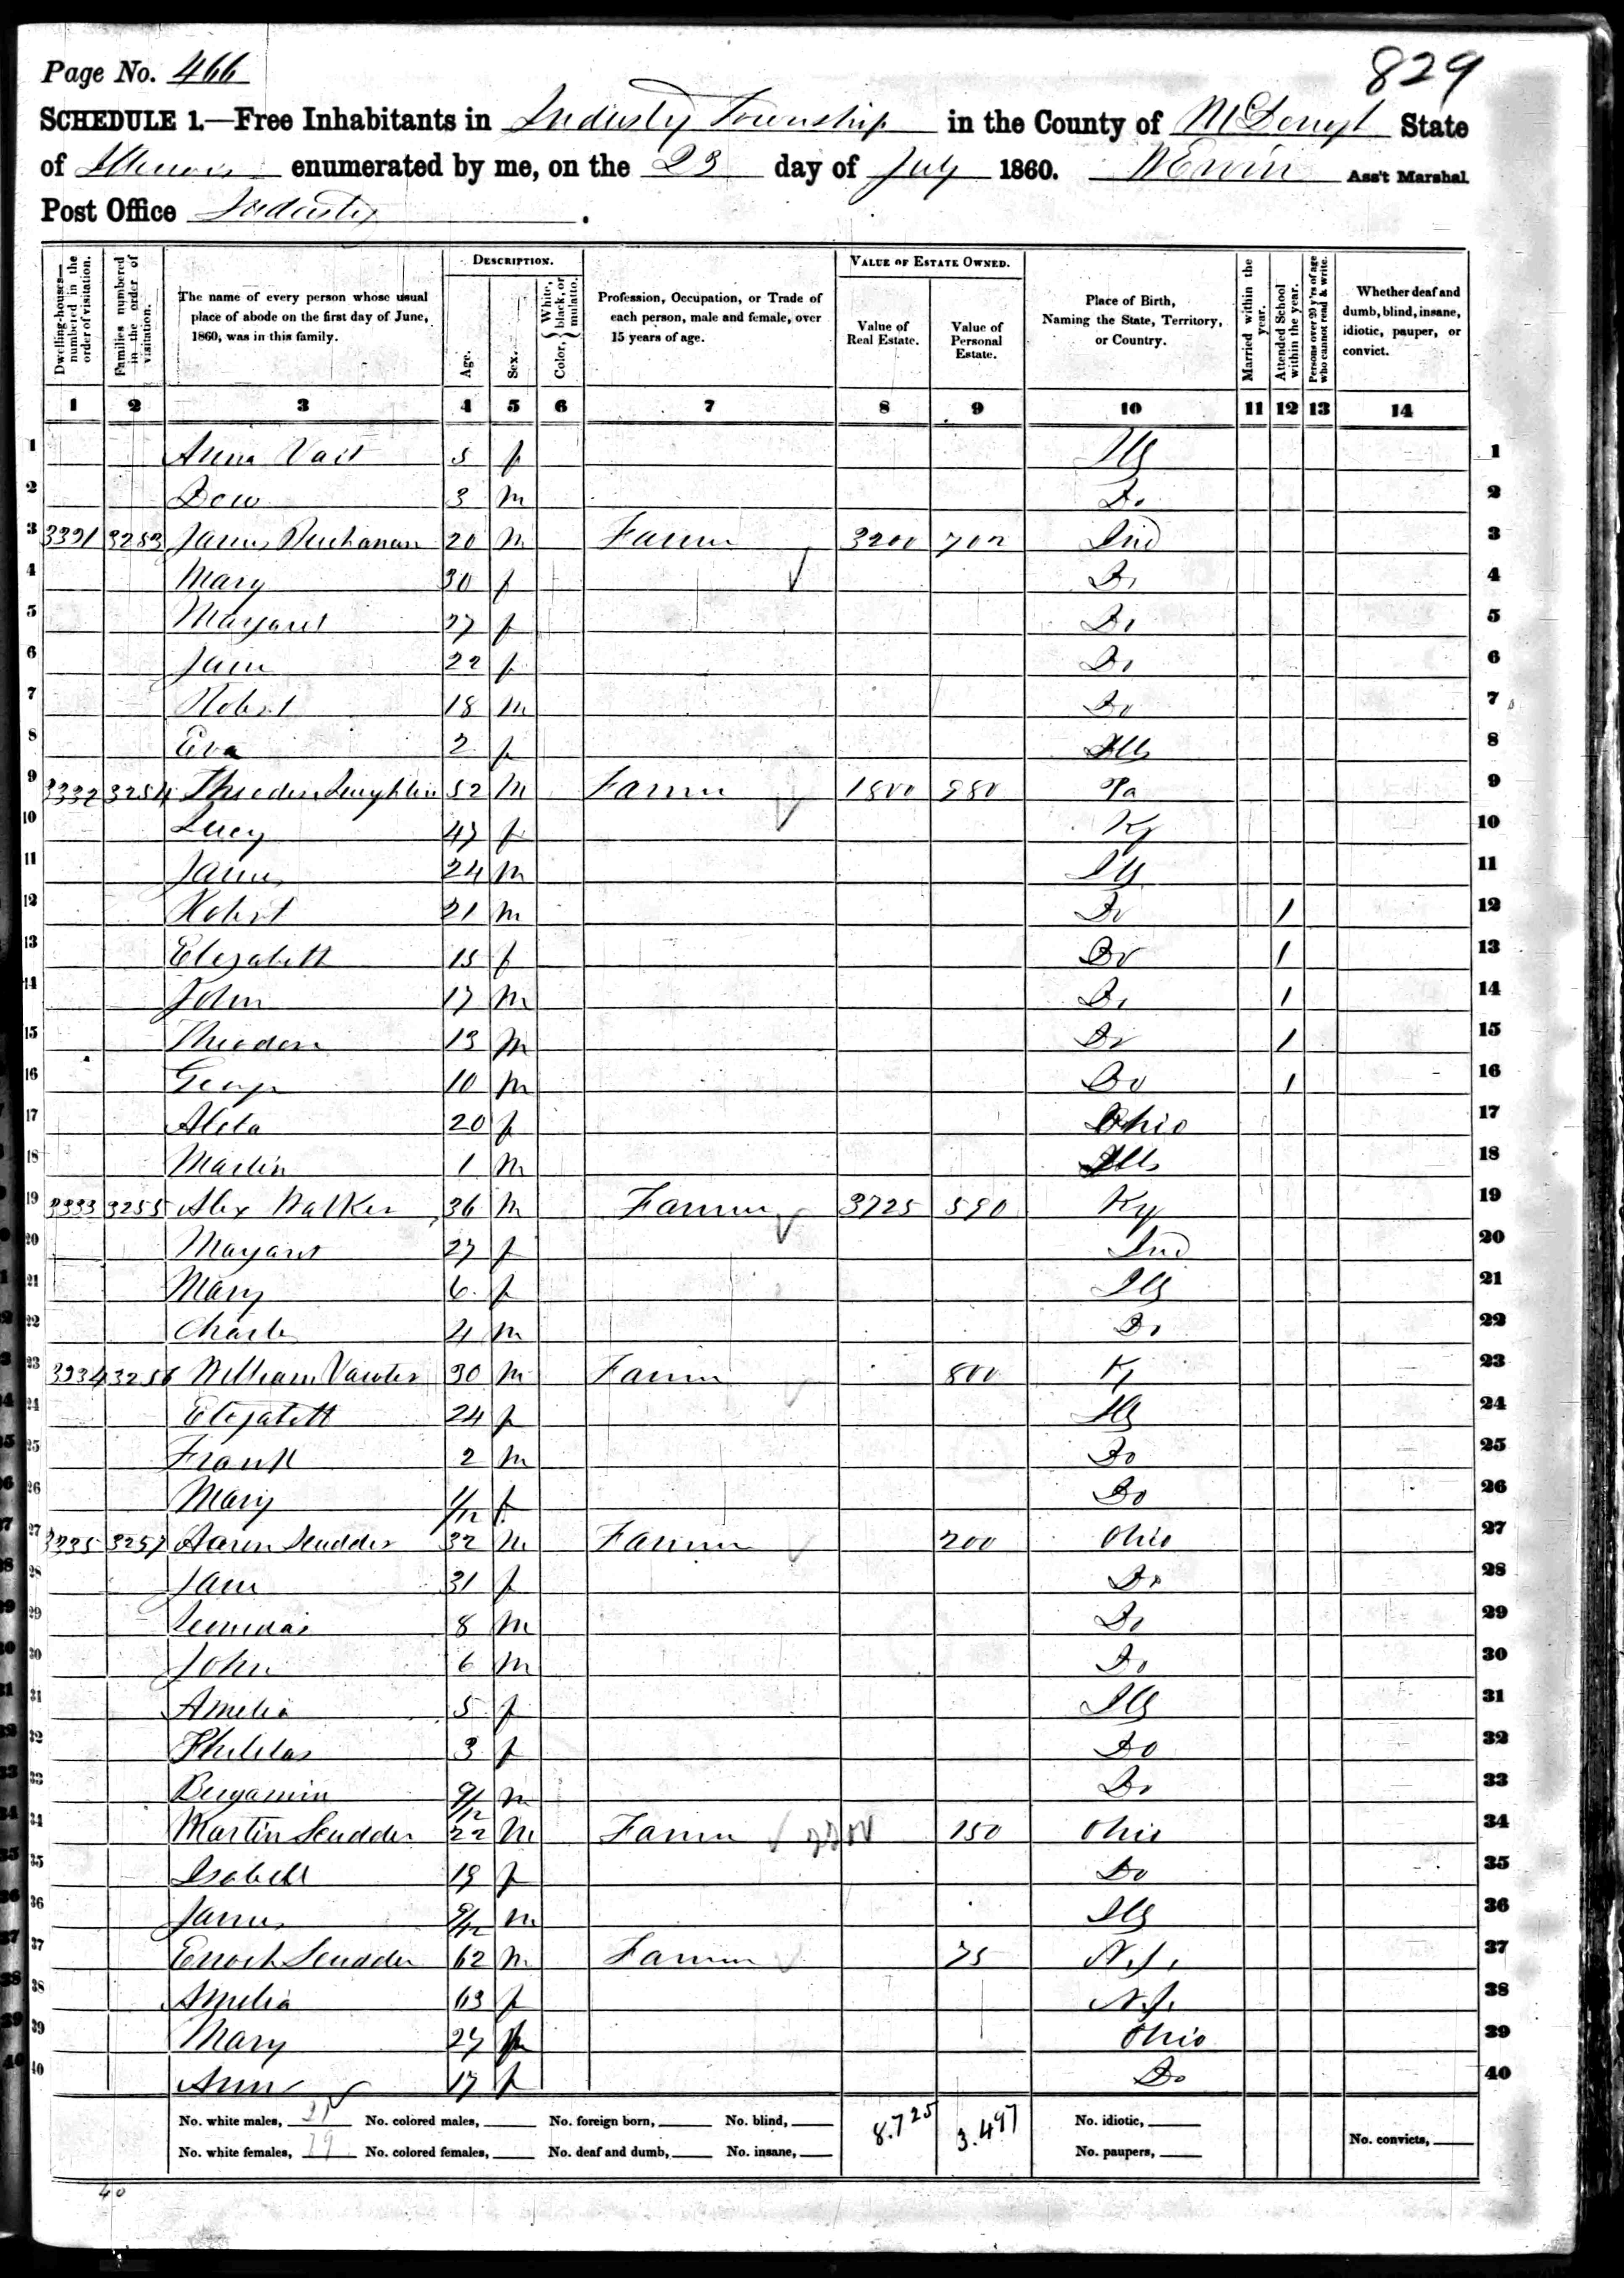 Page No. 466
829
SCHEDULE 1.—Free Inhabitants in Industry Township in the County of McDonough State
of Illinois enumerated by me, on the 23 day of July 1860. W Ervin Ass't Marshal.
Post Office Industry.
DESCRIPTION. VALUE OF ESTATE OWNED.
Dwelling-houses—numbered in the order of visitation. Families numbered in the order of visitation. The name of every person whose usual place of abode on the first day of June, 1860, was in this family. Age. Sex. Color, White, black, or mulatto. Profession, Occupation, or Trade of each person, male and female, over 15 years of age. Value of Real Estate. Value of Personal Estate. Place of Birth, Naming the State, Territory, or Country. Married within the year. Attended School within the year. Persons over 20 y'rs of age who cannot read & write. Whether deaf and dumb, blind, insane, idiotic, pauper, or convict.
1 2 3 4 5 6 7 8 9 10 11 12 13 14
1 Anna Vail 5 f Ills 1
2 Dow 3 m Do 2
3 3331 3253 James Buchanan 20 m Farmer 3200 Ind 3
4 Mary 30 f Do 4
5 Margaret 27 f Do 5
6 Jane 22 f Do 6
7 Robert 18 m Do 7
8 Eva 2 f Ills 8
9 3332 3254 Theodore Laughlin 52 m Farmer 1800 980 Pa 9
10 Lucy 47 f Ky 10
11 James 24 m Ills 11
12 Robert 21 m Do / 12
13 Elizabeth 15 f Do / 13
14 John 17 m Do / 14
15 Theodore 13 m Do / 15
16 George 10 m Do / 16
17 Aleta 20 f Ohio 17
18 Martin 1 m Ills 18
19 3333 3255 Alex Walker 36 m Farmer 3725 590 Ky 19
20 Margaret 27 f Ind 20
21 Mary 6 f Ills 21
22 Charles 4 m Do 22
23 3334 3256 William Vawter 30 m Farmer 800 Ky 23
24 Elizabeth 24 f Ills 24
25 Frank 2 m Do 25
26 Mary 1/12 f Do 26
27 3335 3257 Aaron Scudder 32 m Farmer 200 Ohio 27
28 Jane 31 f Do 28
29 Leonidas 8 m Do 29
30 John 6 m Do 30
31 Amelia 5 f Ills 31
32 3 f Do 32
33 Benjamin 9/12 m Do 33
34 Martin Scudder 22 m Farmer 150 Ohio 34
35 Isabell 19 f Do 35
36 James 9/12 m Ills 36
37 Enoch Scudder 62 m Farmer 75 N.J. 37
38 Amelia 63 f N.J. 38
39 Mary 27 f Ohio 39
40 Ann 17 f Do 40
No. white males, 21 No. colored males, No. foreign born, No. blind, 8.725 3.497 No. idiotic,
No. white females, 19 No. colored females, No. deaf and dumb, No. insane, No. paupers, No. convicts,
40